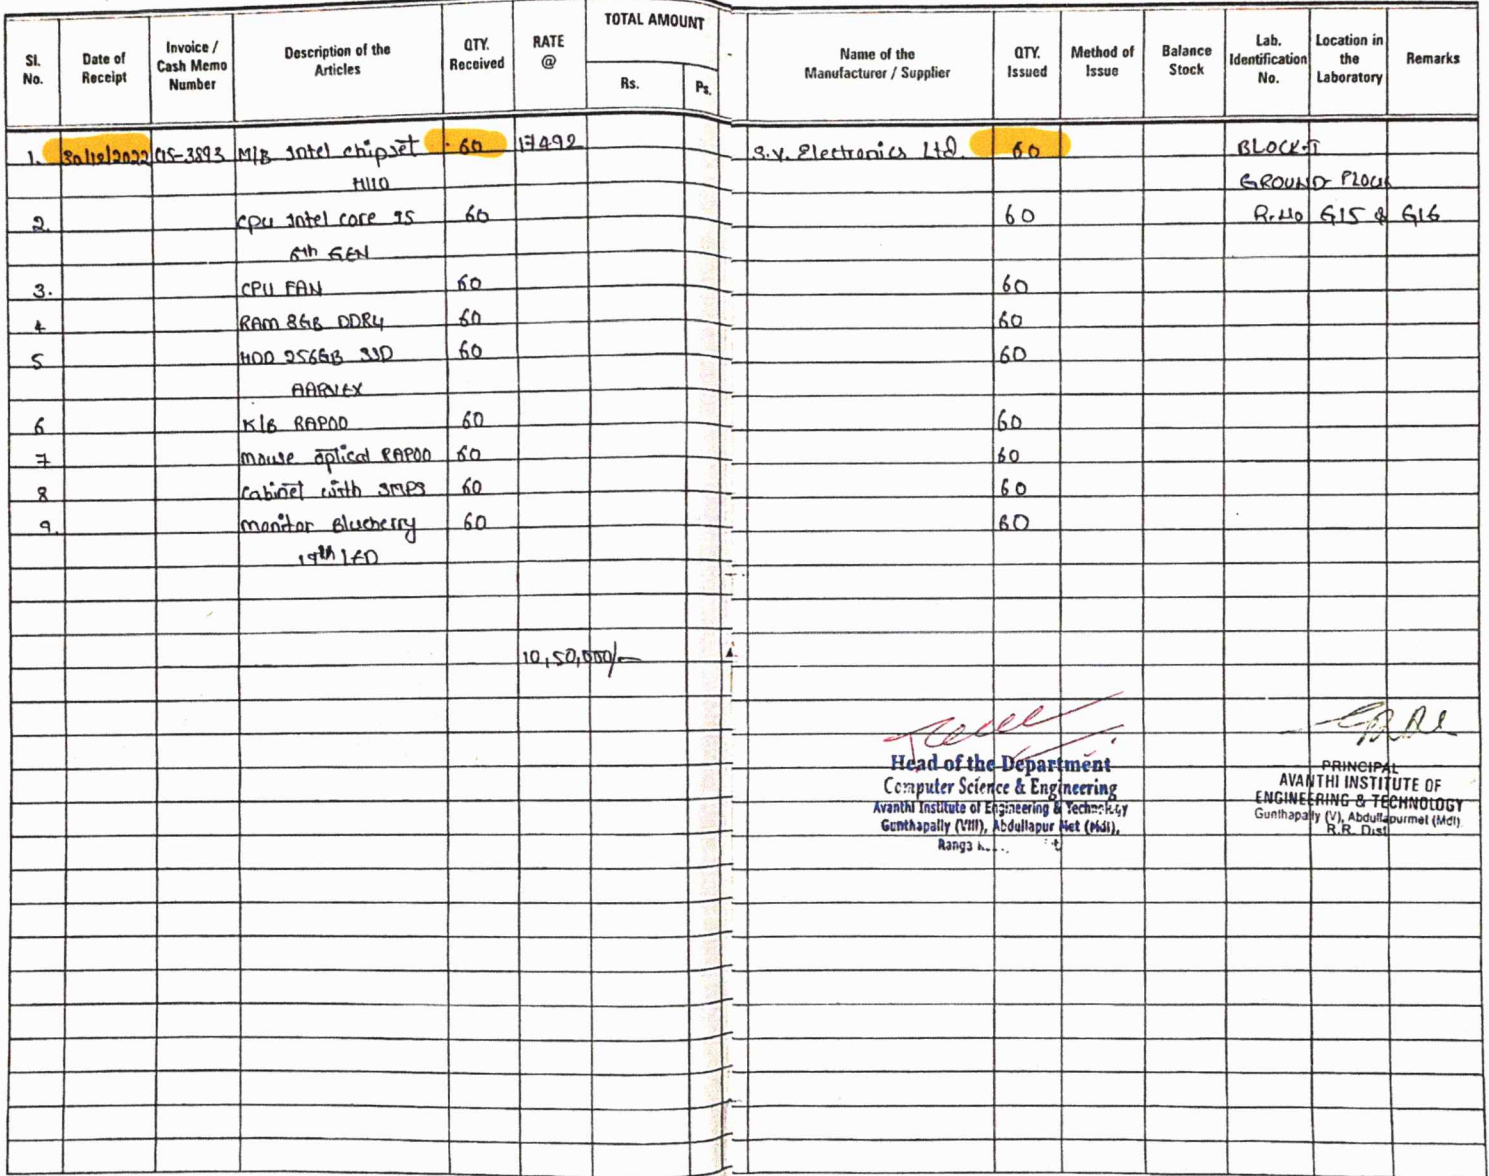 Sl. No. Date of Receipt Invoice / Cash Memo Number Description of the Articles QTY. Received RATE @ TOTAL AMOUNT Rs. Ps. Name of the Manufacturer / Supplier QTY. Issued Method of Issue Balance Stock Lab. Identification No. Location in the Laboratory Remarks
1. 30/12/2022 M/B Intel chipset 60 17492 S.V. Electronics Ltd. 60 BLOCK-I
H110 GROUND
2. CPU Intel core i5 60 60 R.No G15 & G16
6th GEN
3. CPU FAN 60 60
4 RAM 8GB DDR4 60 60
5 HDD 256GB SSD 60 60
6 K/B RAPOO 60 60
7 Mouse optical RAPOO 60 60
8 Cabinet with SMPS 60 60
9. Monitor Blueberry 60 60
10,50,000/-
Head of the Department
Computer Science & Engineering
Avanthi Institute of Engineering & Technology
Gunthapally (Vill), Abdullapur Met (Mdl),
Ranga
PRINCIPAL
AVANTHI INSTITUTE OF
ENGINEERING & TECHNOLOGY
Gunthapally (V), Abdullapurmet (Mdl)
R.R. Dist